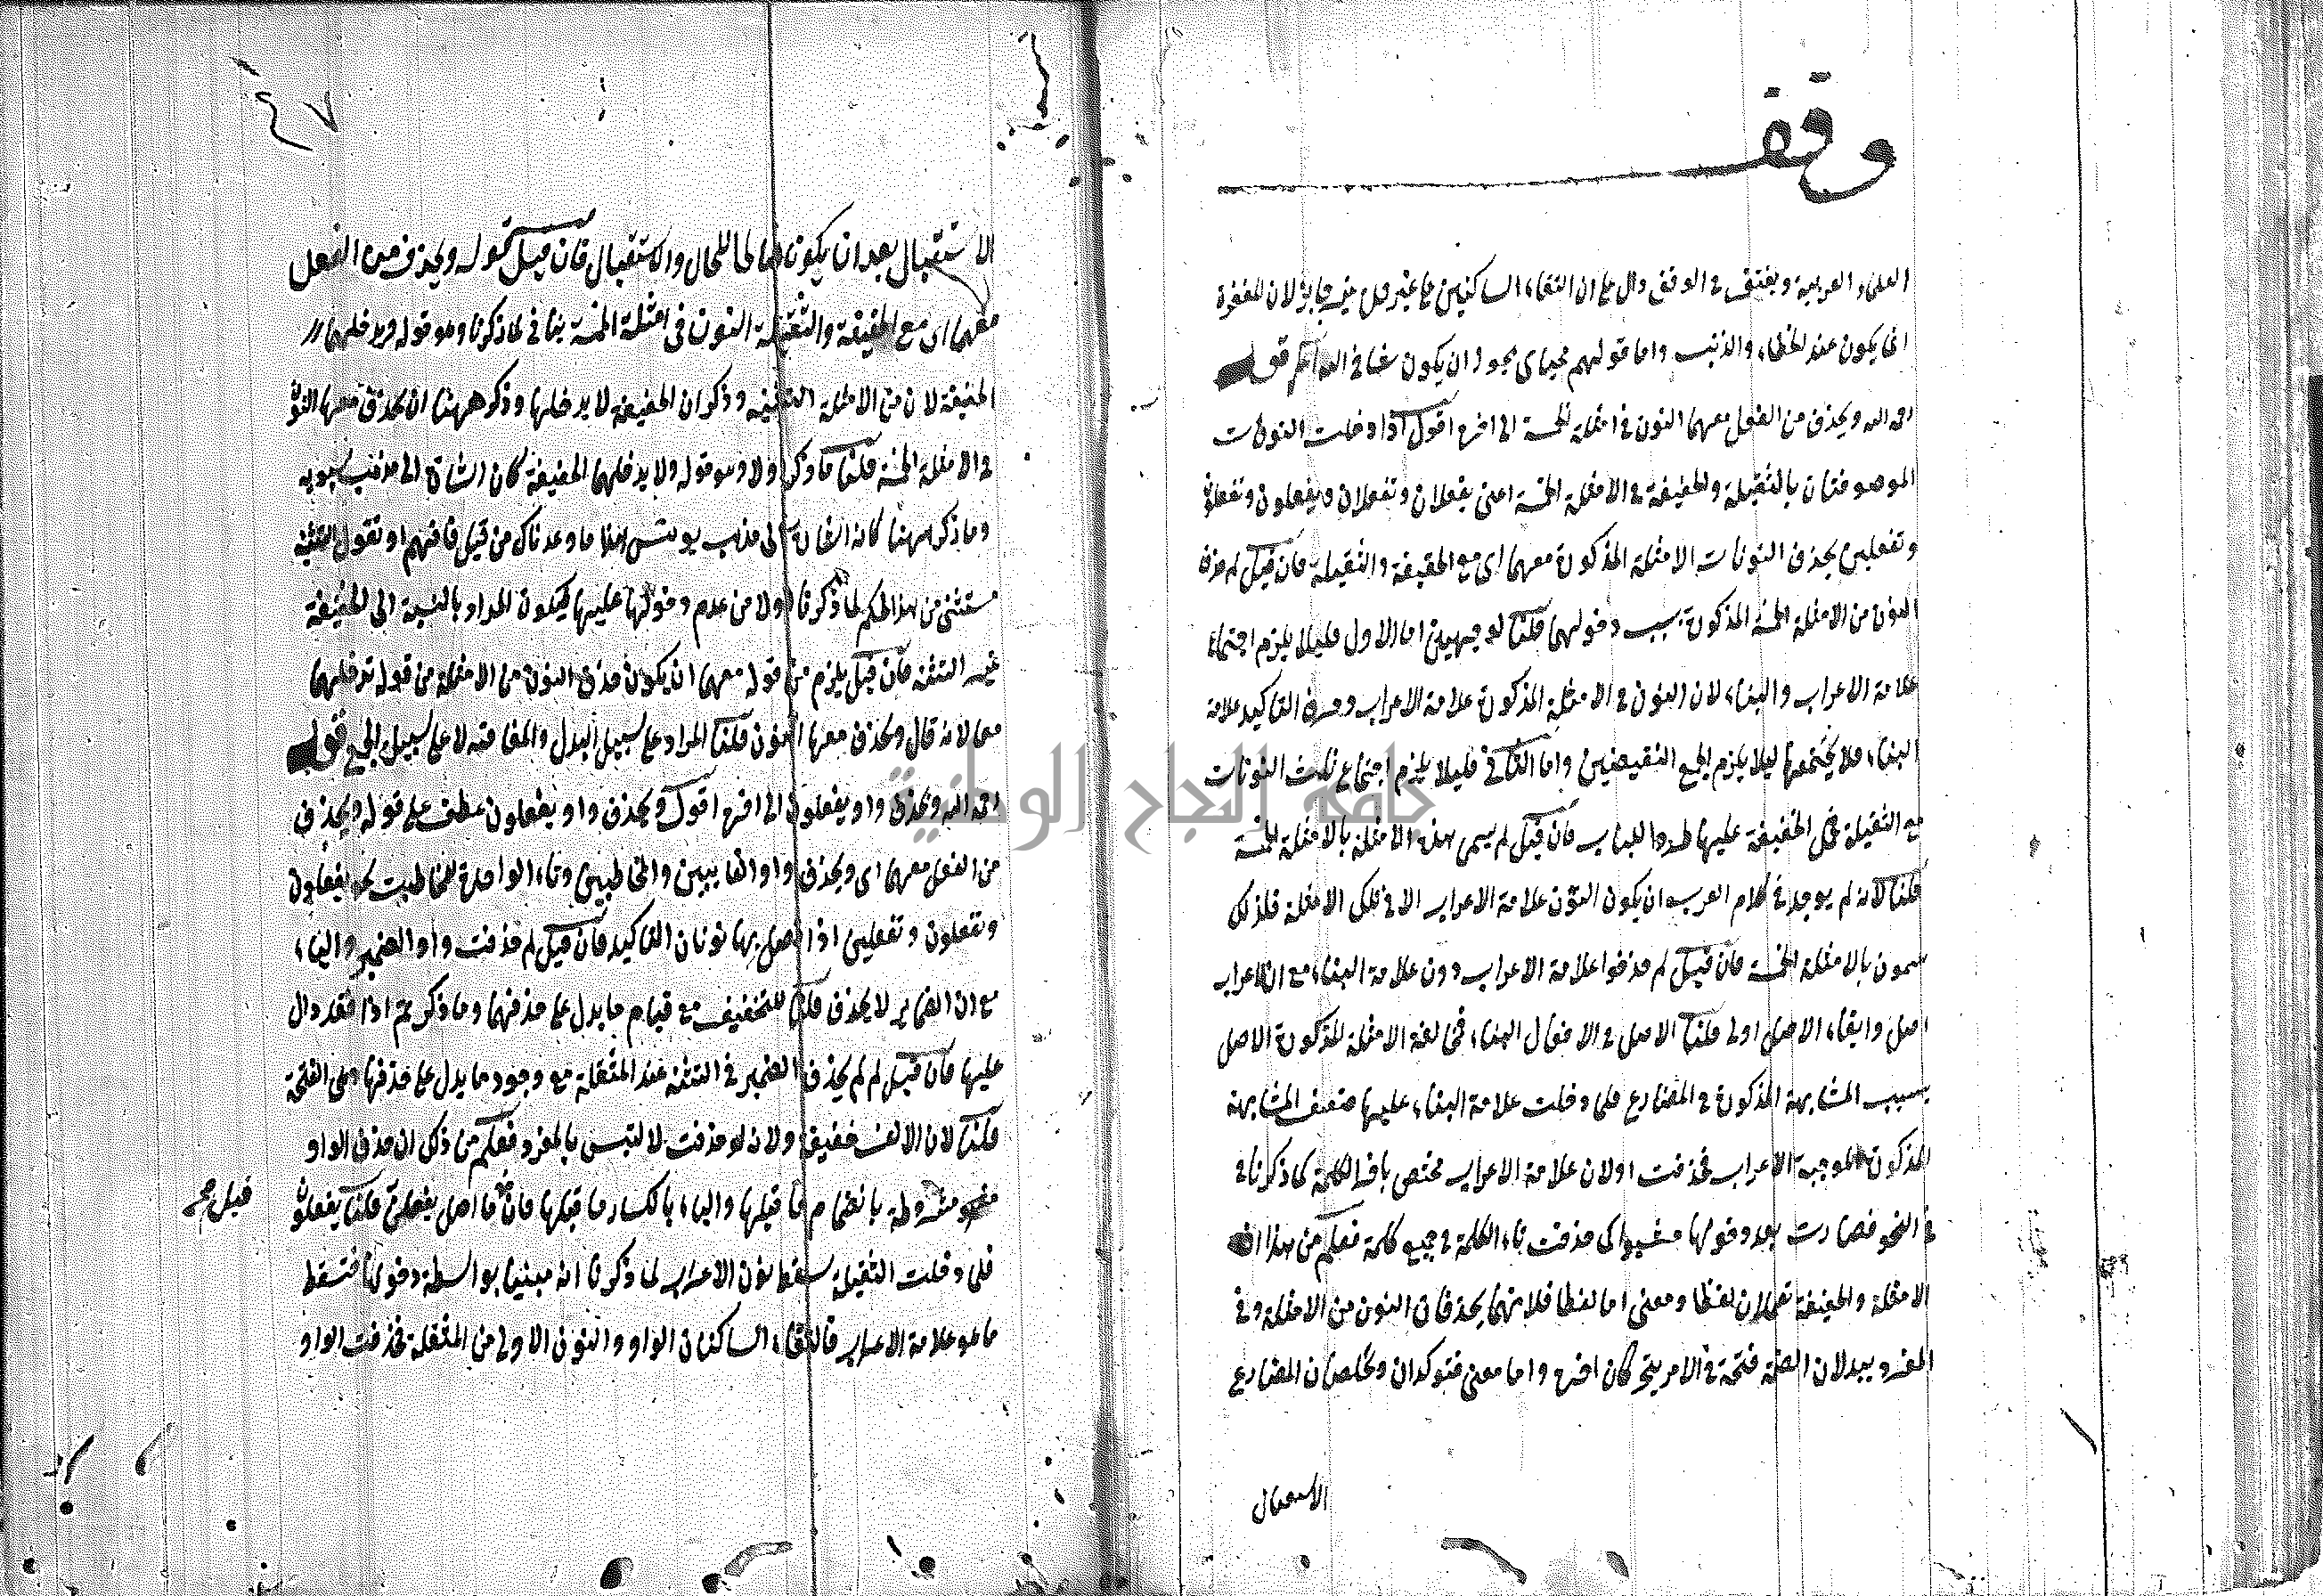 وقف
العلماء العربية ويغتفر في الوقف دال على ان التقاء الساكنين على غير حده غير جايز لان المغفرة
انما يكون عند الخطاء والذنب واما قولهم محياى يجوز ان يكون شاذا والله اعلم قوله
رحمه الله ويحذف من الفعل معهما النون في امثلة الخمسة الى اخره اقول اذا دخلت النونات
الموصوفتان بالثقيلة والخفيفة في الامثلة الخمسة اعنى يفعلان وتفعلان ويفعلون وتفعلون
وتفعلين يحذف النونات الامثلة المذكورة معهما اى مع الخفيفة والثقيلة فان قيل لم حذف
النون من الامثلة الخمسة المذكورة بسبب دخولهما قلنا لوجهين اما الاول فليلا يلزم اجتماع
علامة الاعراب والبناء لان النون في الامثلة المذكورة علامة الاعراب وهذه التاكيد علامة
البناء فلا يجتمعها ليلا يلزم الجمع النقيضين واما الثانى فليلا يلزم اجتماع ثلث النونات
مع الثقيلة فحمل الخفيفة عليها طردا للباب فان قيل لم يسمى هذه الامثلة بالامثلة الخمسة
قلنا لانه لم يوجد في كلام العرب ان يكون النون علامة الاعراب الا في تلك الامثلة فلذلك
سمون بالامثلة الخمسة فان قيل لم حذفوا علامة الاعراب دون علامة البناء مع ان الاعراب
اصل وابقاء الاصل اولى قلنا الاصل في الافعال البناء فمخالفة الامثلة المذكورة الاصل
بسبب المشابهة المذكورة في المضارع فلما دخلت علامة البناء عليها ضعف المشابهة
المذكورة الموجبة الاعراب فحذفت اولان علامة الاعراب مختص باخر الكلمة كما ذكرنا في
في النحو فصارت بعد دخولها حشوا كما حذفت تاء الكلمة في جميع كلمة فعلم من هذا ان
الامثلة والخفيفة تعملان لفظا ومعنى اما لفظا فلانهما يحذفان النون من الامثلة وفي
المفرد يبدلان الضمة فتحة في الامر كان اخره واما معنى فتوكدان وتخلصان المضارع
الاستقبال
٤٧
الاستقبال بعد ان يكونا صالحا للحال والاستقبال فان قيل قوله ويحذف من الفعل
معهما اى مع الخفيفة والثقيلة النون في امثلة الخمسة ينافى لما ذكرنا وهو قوله ويدخلهما
الخفيفة لان من الامثلة التثنيه وذكر ان الخفيفة لا يدخلها وذكر ههنا ان يحذف معها النون
في الامثلة الخمسة قلنا ما ذكر اولا وهو قوله ولا يدخلهما الخفيفة كان اشارة الى مذهب سيبويه
وما ذكر ههنا كانه اشارة الى مذهب يونس هذا ما وعدناك من قبل فافهم او نقول التثنية
مستثنى من هذا الحكم لما ذكرنا اولا من عدم دخولها عليها فيكون المراد بالنسبة الى الخفيفة
غير التثنية فان قيل يلزم من قوله معهما ان يكون حذف النون من الامثلة من قوله تدخلهما
معا لانه قال ويحذف معها النون قلنا المراد على سبيل البدل والمعاقبة لا على سبيل الجمع قوله
رحمه الله ويحذف واو يفعلون الى اخره اقول ويحذف واو يفعلون عطف على قوله ويحذف
من الفعل معهما اى ويحذف واو الغايبين والمخاطبين وتاء الواحدة المخاطبة نحو يفعلون
وتفعلون وتفعلين اذا اتصل بها نونان التاكيد فان قيل لم حذفت واو الضمير والياء
مع ان الضماير لا يحذف قلنا للتخفيف مع قيام ما يدل على حذفهما وما ذكر ثم اذا فقد دال
عليها فان قيل لم لم يحذف الضمير في التثنية عند المثقلة مع وجود ما يدل على حذفها وهى الفتحة
قلنا لان الالف خفيف ولان لو حذفت لا لتبس بالمفرد فعلم من ذلك ان حذف الواو
مشروطة بانضمام ما قبلها والياء بانكسار ما قبلها فان ما اصل يفعلن قلنا يفعلون
قيل
فلما دخلت الثقيلة سقط نون الاعراب لما ذكرنا انه مبنيا بواسطة دخولها فتسقط
ما هو علامة الاعراب فالتقاء الساكنان الواو والنون الاولى من المثقلة فحذفت الواو